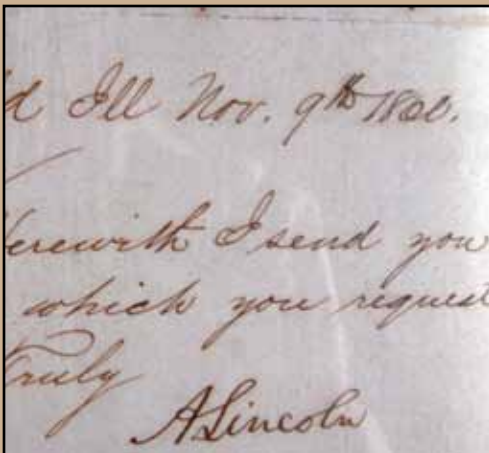 d Ill Nov. 9th 1860.
Herewith I send you
which you request
Truly
A Lincoln